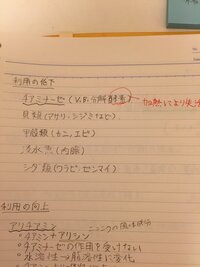 利用の低下
チアミナーゼ (V.B₁分解酵素) → 加熱により失活
貝類 (アサリ、シジミなど)
甲殻類 (カニ、エビ)
淡水魚 (内臓)
シダ類 (ワラビ、ゼンマイ)
利用の向上
アリチアミン
°チアミン+アリシン
°チアミナーゼの作用を受けない
°水溶性→脂溶性に変化